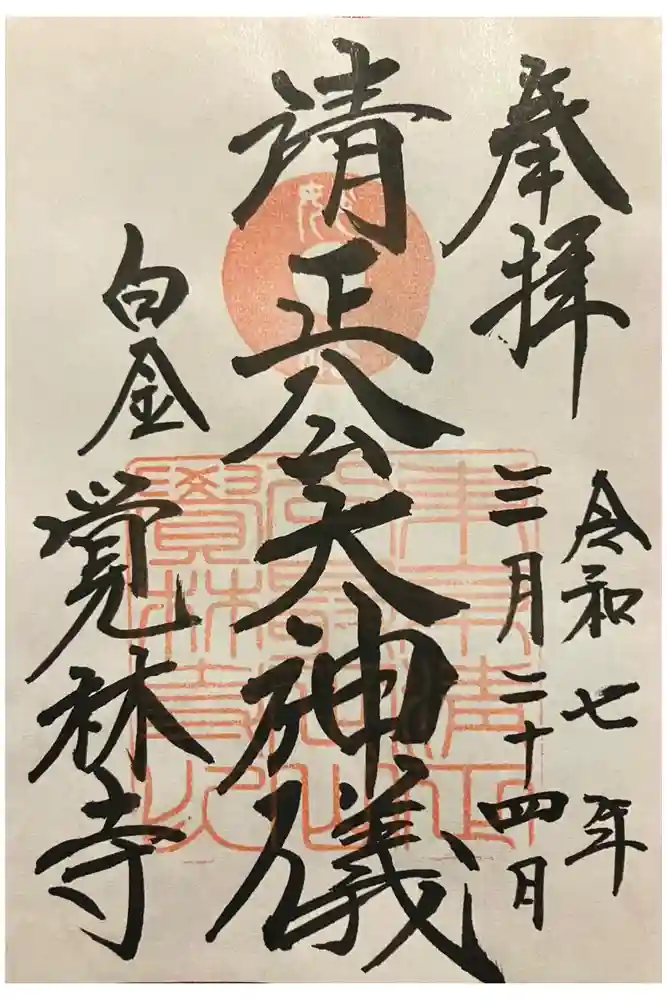 奉拝
令和七年
三月二十四日
清正公大神儀
白金
覚林寺